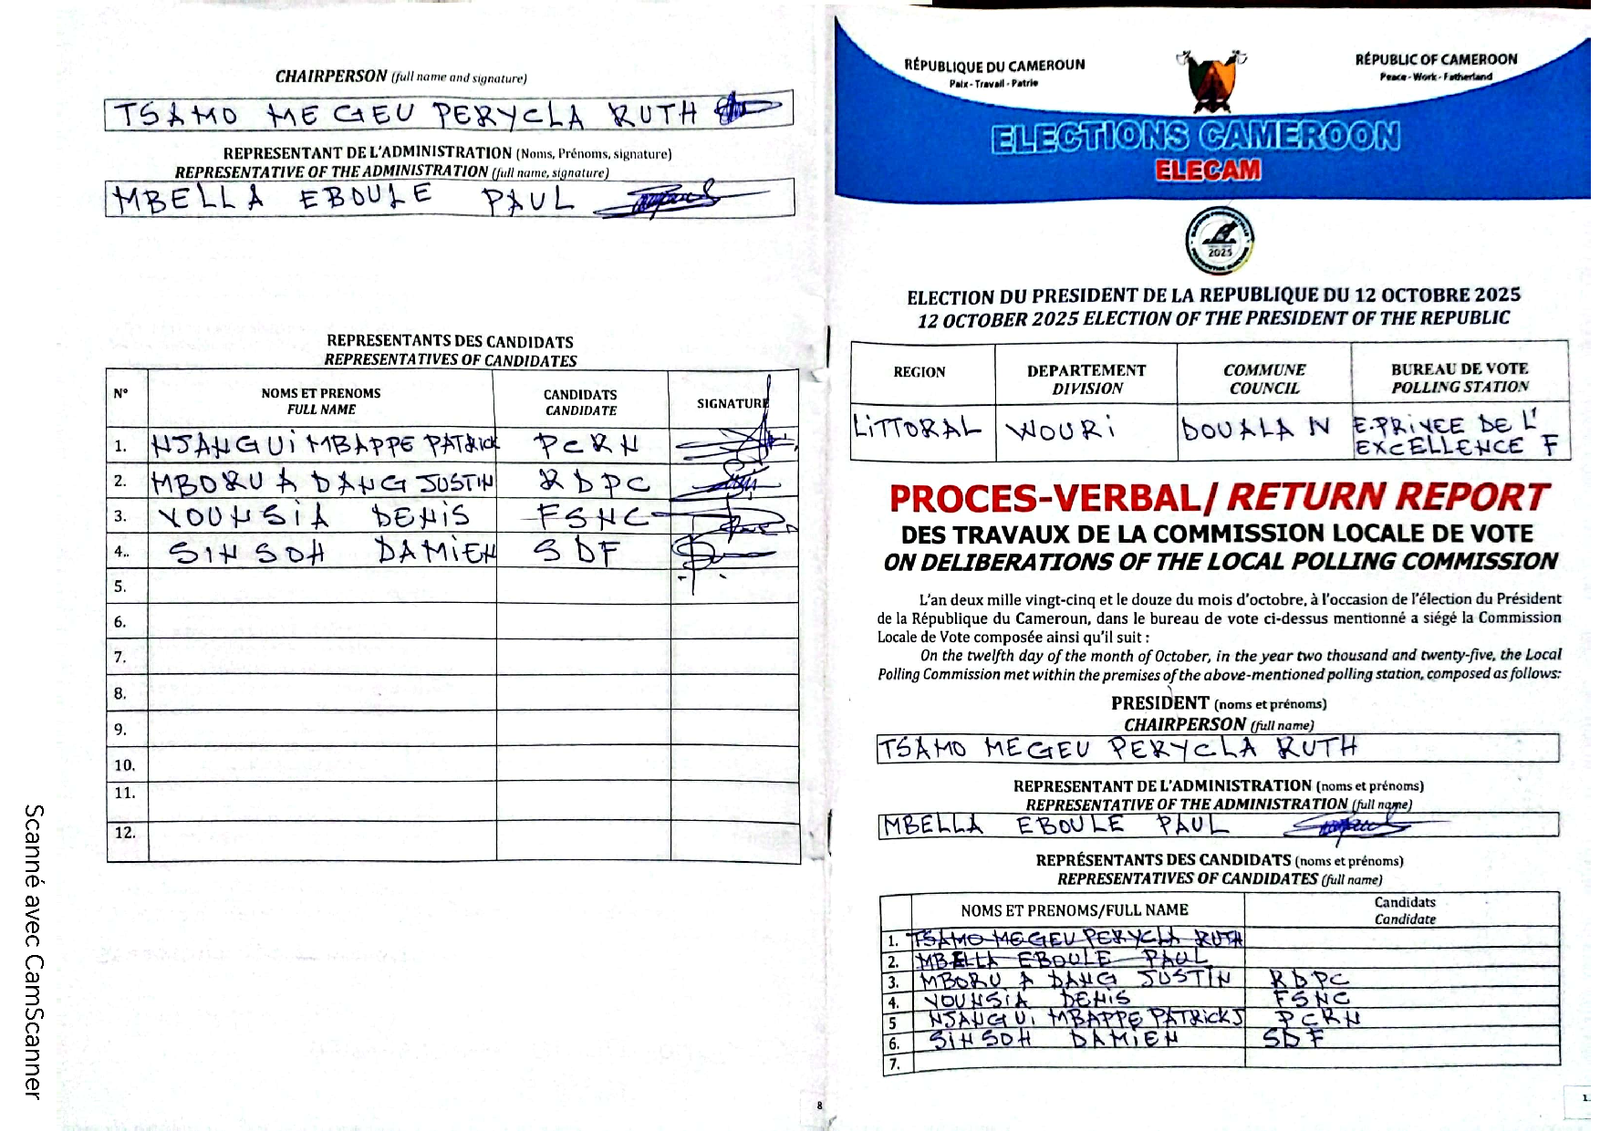 CHAIRPERSON (full name and signature)
TSAMO MEGEU PERYCLA RUTH
REPRESENTANT DE L'ADMINISTRATION (Noms, Prénoms, signature)
REPRESENTATIVE OF THE ADMINISTRATION (full name, signature)
MBELLA EBOULE PAUL
REPRESENTANTS DES CANDIDATS
REPRESENTATIVES OF CANDIDATES
N° NOMS ET PRENOMS CANDIDATS SIGNATURE
FULL NAME CANDIDATE
1. NJANGUI MBAPPE PATRICK PCRN
2. MBORU A DANG JUSTIN RDPC
3. YOUNSIA DENIS FSNC
4.. SINSOH DAMIEN SDF
5.
6.
7.
8.
9.
10.
11.
12.
8
Scanné avec CamScanner
RÉPUBLIQUE DU CAMEROUN
Paix - Travail - Patrie
RÉPUBLIC OF CAMEROON
Peace - Work - Fatherland
ELECTIONS CAMEROON
ELECAM
2025
ELECTION DU PRESIDENT DE LA REPUBLIQUE DU 12 OCTOBRE 2025
12 OCTOBER 2025 ELECTION OF THE PRESIDENT OF THE REPUBLIC
REGION DEPARTEMENT COMMUNE BUREAU DE VOTE
DIVISION COUNCIL POLLING STATION
LITTORAL WOURI DOUALA IV E.PRIVEE DE L'
EXCELLENCE F
PROCES-VERBAL/ RETURN REPORT
DES TRAVAUX DE LA COMMISSION LOCALE DE VOTE
ON DELIBERATIONS OF THE LOCAL POLLING COMMISSION
L'an deux mille vingt-cinq et le douze du mois d'octobre, à l'occasion de l'élection du Président
de la République du Cameroun, dans le bureau de vote ci-dessus mentionné a siégé la Commission
Locale de Vote composée ainsi qu'il suit :
On the twelfth day of the month of October, in the year two thousand and twenty-five, the Local
Polling Commission met within the premises of the above-mentioned polling station, composed as follows:
PRESIDENT (noms et prénoms)
CHAIRPERSON (full name)
TSAMO MEGEU PERYCLA RUTH
REPRESENTANT DE L'ADMINISTRATION (noms et prénoms)
REPRESENTATIVE OF THE ADMINISTRATION (full name)
MBELLA EBOULE PAUL
REPRÉSENTANTS DES CANDIDATS (noms et prénoms)
REPRESENTATIVES OF CANDIDATES (full name)
NOMS ET PRENOMS/FULL NAME Candidats
Candidate
1. TSAMO MEGEU PERYCLA RUTH
2. MBELLA EBOULE PAUL
3. MBORU A DANG JUSTIN RDPC
4. YOUNSIA DENIS FSNC
5 NJANGUI MBAPPE PATRICK J PCRN
6. SINSOH DAMIEN SDF
7.
1.